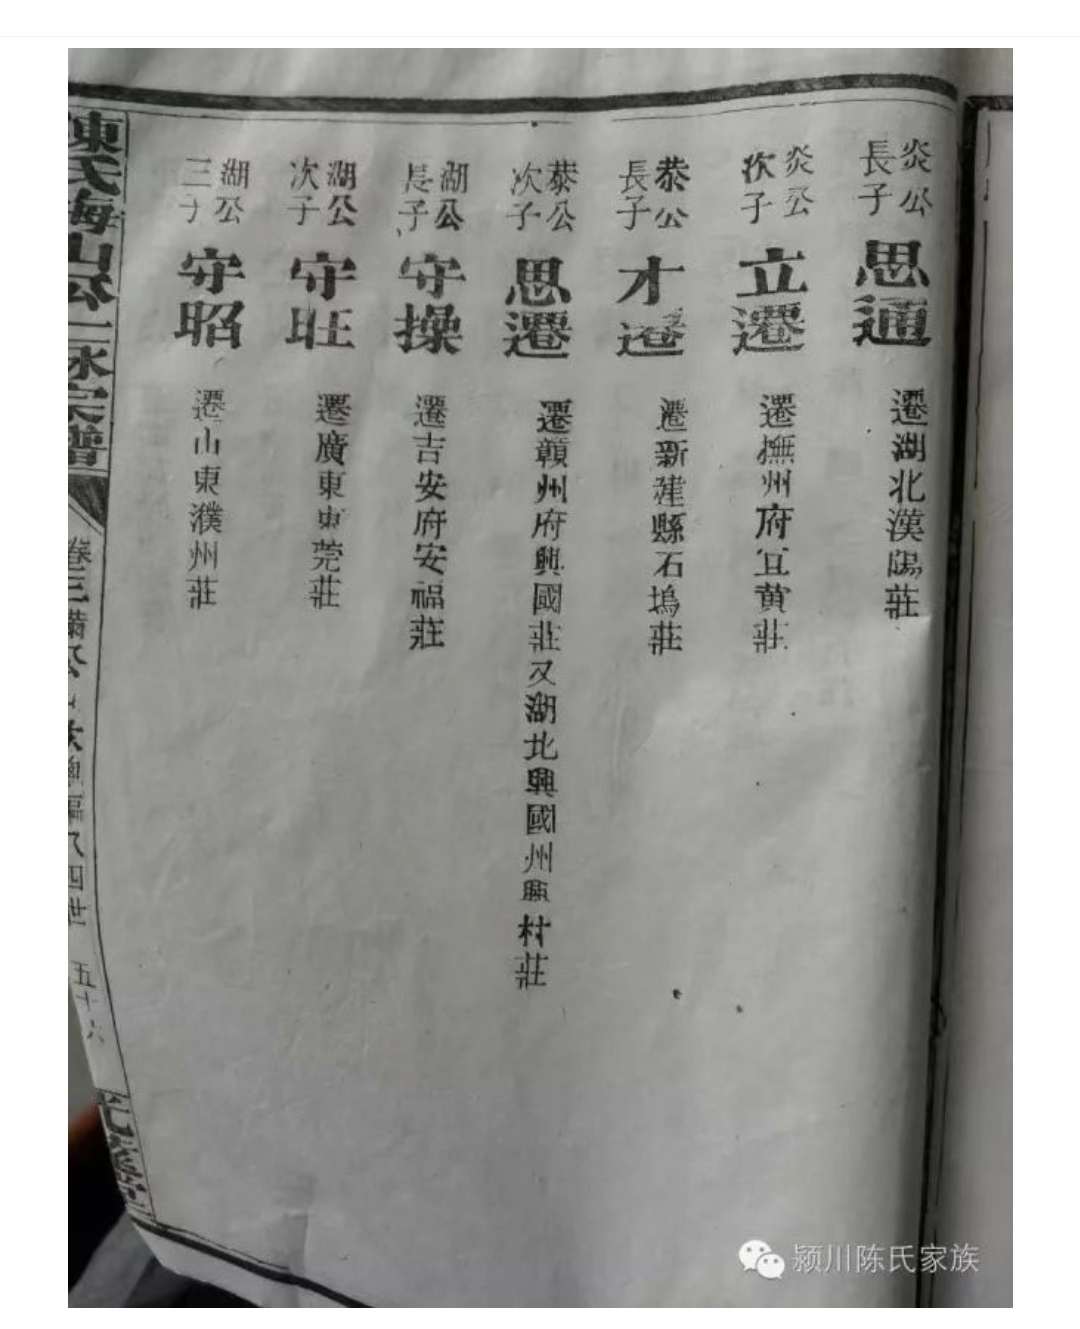 炎公長子 思通 遷湖北漢陽莊
炎公次子 立遷 遷撫州府宜黄莊
恭公長子 才遷 遷新建縣石塢莊
恭公次子 思遷 遷贛州府興國莊又湖北興國州興村莊
湖公長子 守操 遷吉安府安福莊
湖公次子 守旺 遷廣東東莞莊
湖公三子 守昭 遷山東濮州莊
陳氏海山公一脉宗譜
卷三
五十六
颍川陈氏家族